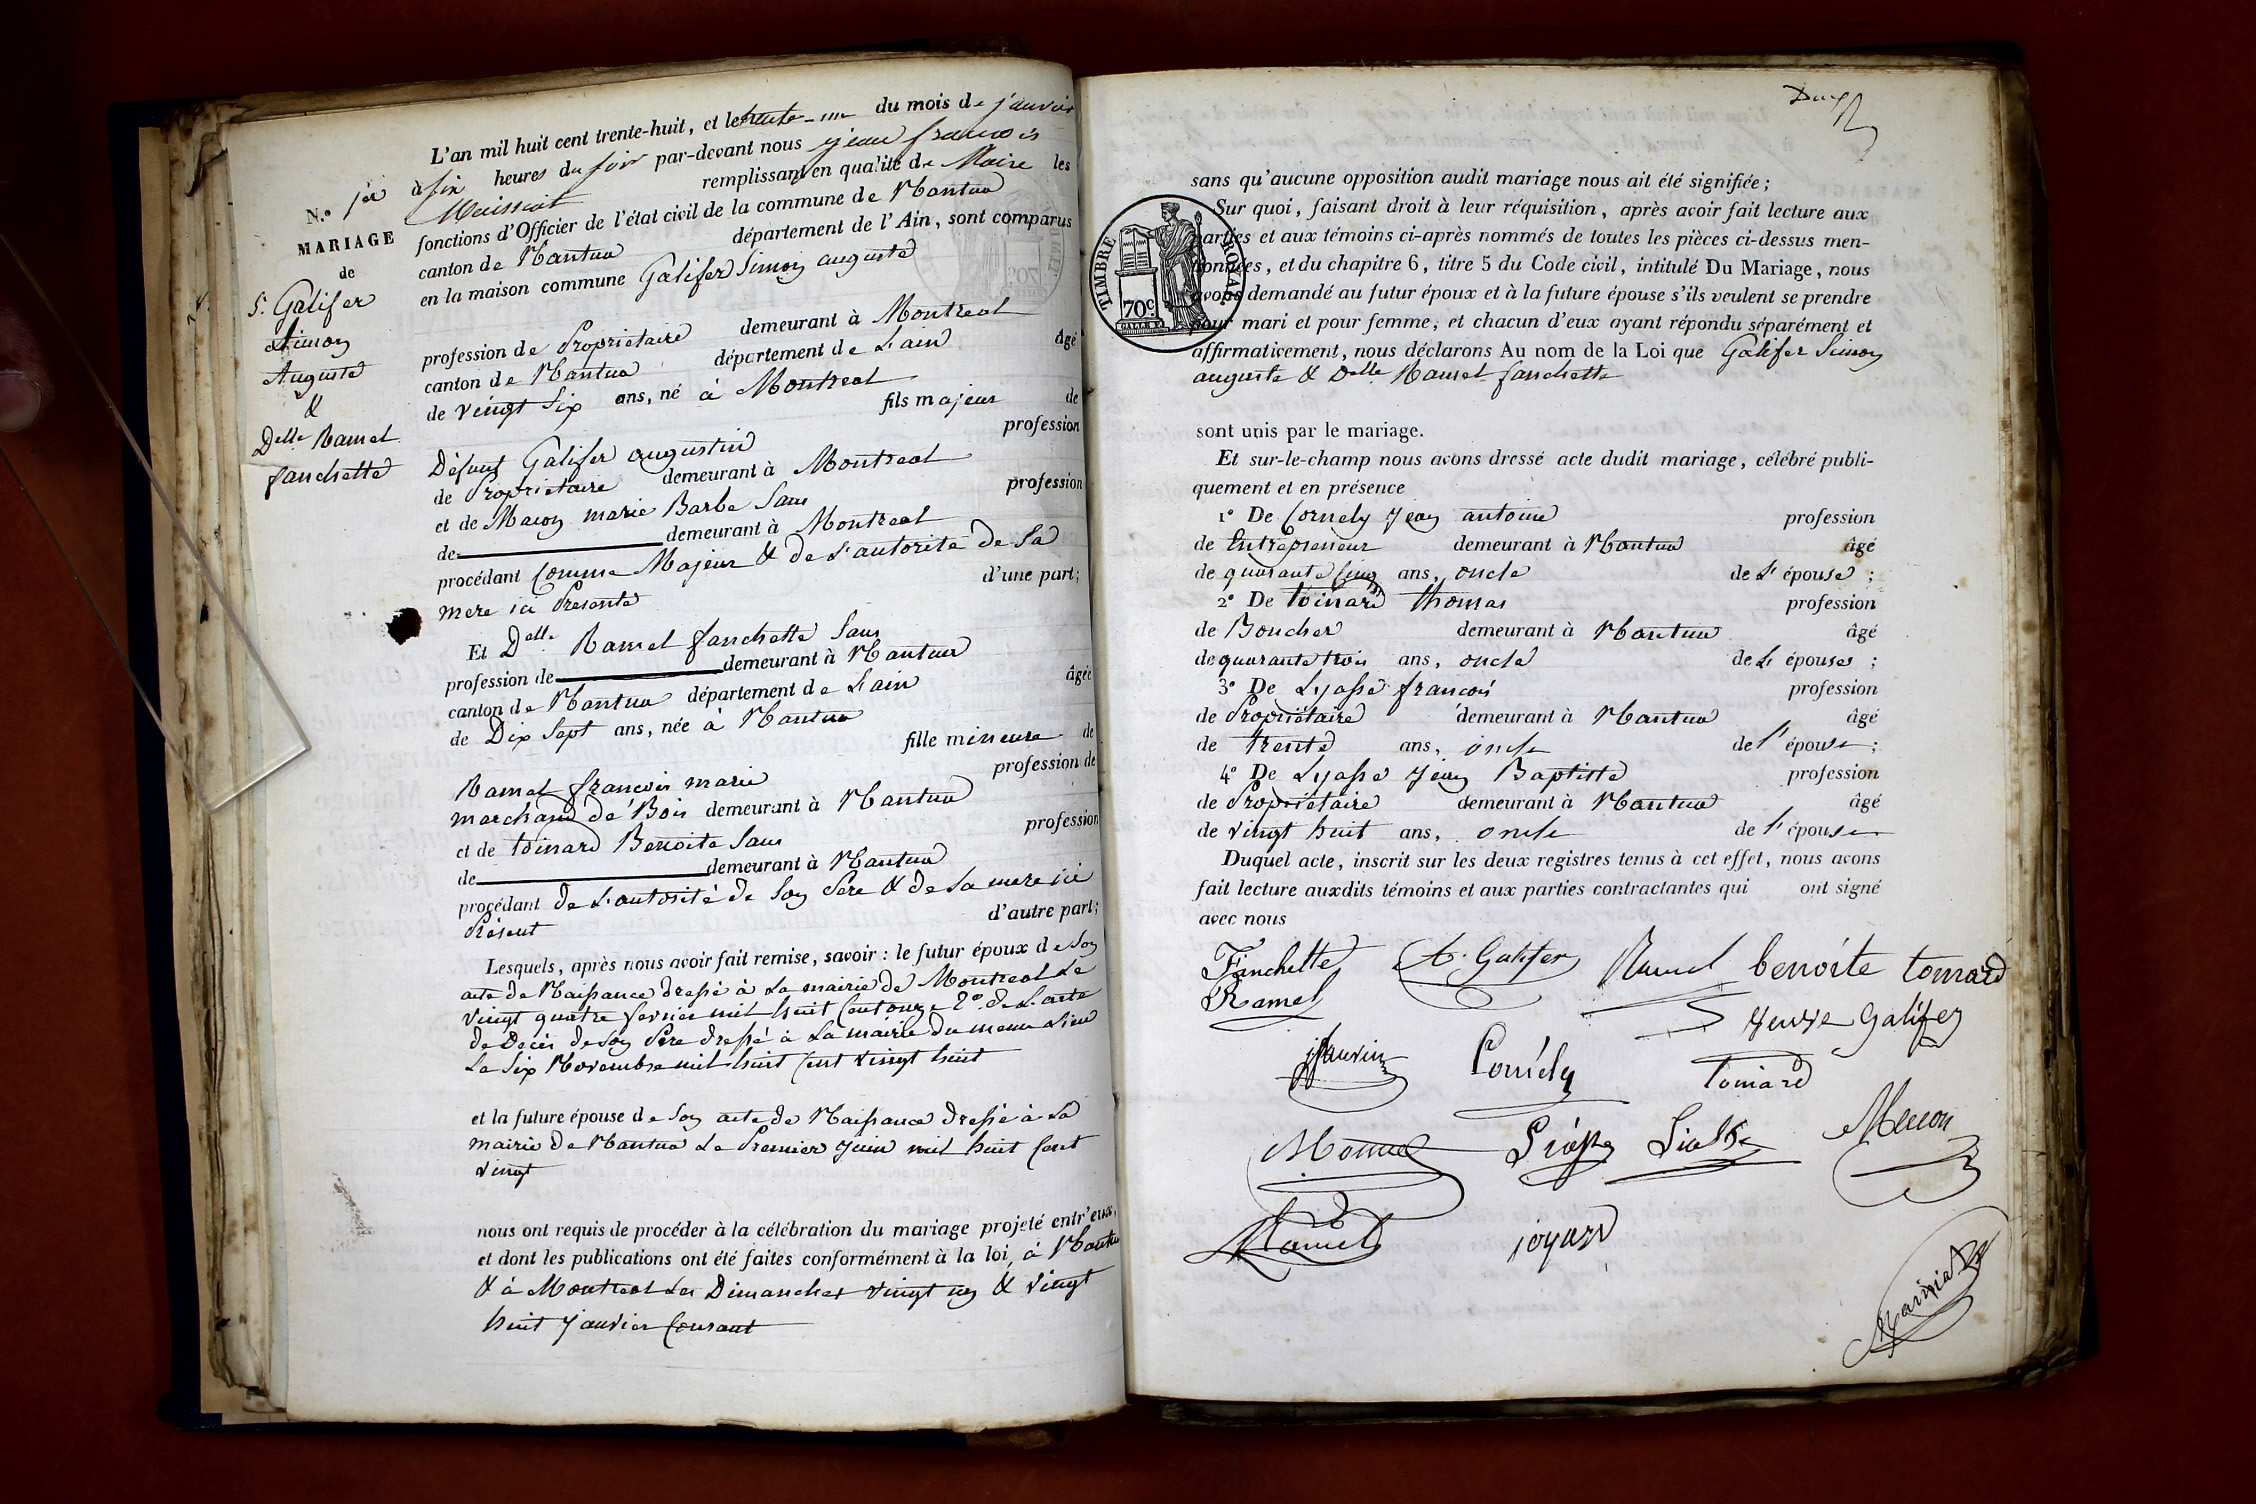 L'an mil huit cent trente-huit, et le trente-un du mois de janvier
à six heures du soir par-devant nous jean francois
Maissiat remplissant en qualité de Maire les
fonctions d'Officier de l'état civil de la commune de Nantua
canton de Nantua département de l'Ain, sont comparus
en la maison commune Galifer Simon auguste
profession de Propriétaire demeurant à Montreal
canton de Nantua département de L'ain âgé
de vingt Six ans, né à Montreal
fils majeur de
Défunt Galifer augustin profession
de Propriétaire demeurant à Montreal
et de Macon marie Barbe Sans profession
de demeurant à Montreal
procédant Comme Majeur & de L'autorité de Sa
mere ici Presente d'une part;
Et Delle Ramel fanchette Sans
profession de demeurant à Nantua
canton de Nantua département de L'ain âgée
de Dix Sept ans, née à Nantua
fille mineure de
Ramel francois marie profession de
marchand de Bois demeurant à Nantua
et de toinard Benoite Sans profession
de demeurant à Nantua
procédant de L'autorité de Son Pere & de Sa mere ici
Présent d'autre part;
Lesquels, après nous avoir fait remise, savoir : le futur époux de Son
acte de Naissance dressé à La mairie de Montreal Le
vingt quatre fevrier mil huit Cent onze 2º de L'acte
de Deces de Son Pere dressé à La mairie du meme Lieu
Le Six Novembre mil huit Cent vingt huit
et la future épouse de Son acte de Naissance dressé à La
mairie de Nantua Le Premier Juin mil huit Cent
vingt
nous ont requis de procéder à la célébration du mariage projeté entr'eux,
et dont les publications ont été faites conformément à la loi, à Nantua
& à Montreal Les Dimanches vingt un & vingt
huit Janvier Courant
N.º 1er
MARIAGE
de
Sr Galifer
Simon
Auguste
&
Delle Ramel
fanchette
sans qu'aucune opposition audit mariage nous ait été signifiée;
Sur quoi, faisant droit à leur réquisition, après avoir fait lecture aux
parties et aux témoins ci-après nommés de toutes les pièces ci-dessus men-
tionnées, et du chapitre 6, titre 5 du Code civil, intitulé Du Mariage, nous
avons demandé au futur époux et à la future épouse s'ils veulent se prendre
pour mari et pour femme, et chacun d'eux ayant répondu séparément et
affirmativement, nous déclarons Au nom de la Loi que Galifer Simon
auguste & Delle Ramel fanchette
sont unis par le mariage.
Et sur-le-champ nous avons dressé acte dudit mariage, célébré publi-
quement et en présence
1º De Cornely Jean antoine profession
de Entrepreneur demeurant à Nantua âgé
de quarante Cinq ans, oncle de L'épouse;
2º De toinard thomas profession
de Boucher demeurant à Nantua âgé
de quarante trois ans, oncle de L'épouse;
3º De Lyasse francois profession
de Propriétaire demeurant à Nantua âgé
de trente ans, oncle de l'épouse;
4º De Lyasse Jean Baptiste profession
de Propriétaire demeurant à Nantua âgé
de vingt huit ans, oncle de l'épouse
Duquel acte, inscrit sur les deux registres tenus à cet effet, nous avons
fait lecture auxdits témoins et aux parties contractantes qui ont signé
avec nous
TIMBRE ROYAL
70c.
Fanchette A. Galifer Ramel benoite tomard
Ramel
Galifer
Cornély Tomard
Macon
Ramel joyard